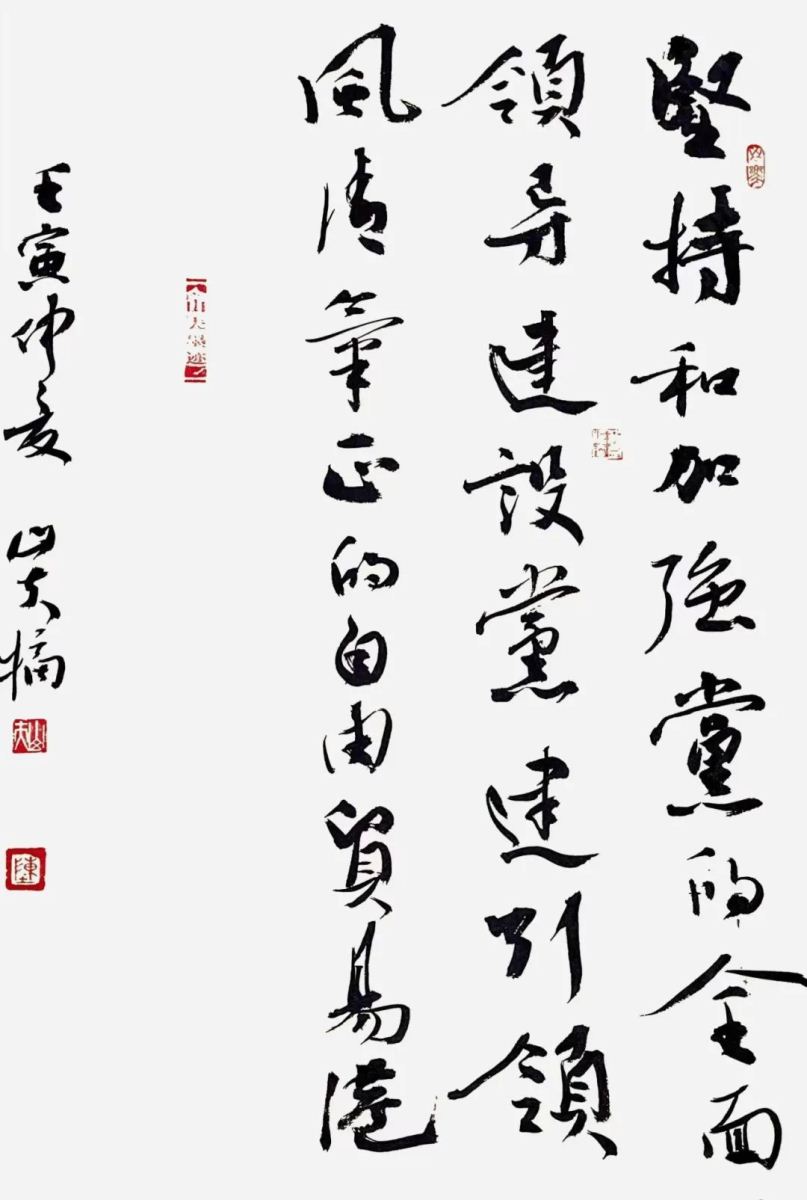 堅持和加強黨的全面
領导建設黨建引領
風清氣正的自由貿易港
壬寅仲夏 山夫摘
山夫
陳